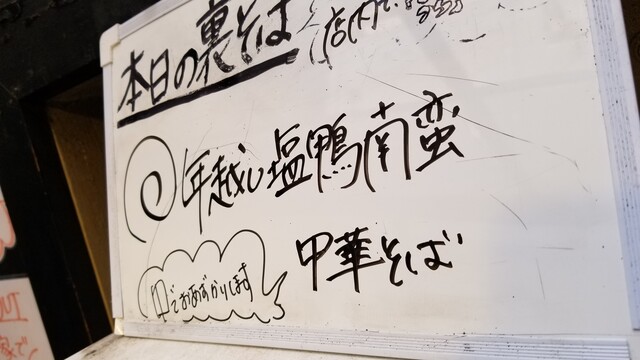 本日の裏そば 店内で
年越し塩鴨南蛮
中華そば
中でおあずかりします